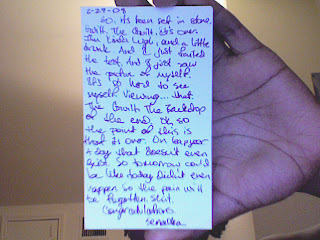 2-29-08
So, it's been set in stone.
Guilt. The Guilt. It's over.
I'm kinda high, and a little
drunk. And I just failed
the test. And I just saw
the picture of myself.
It's so hard to see
myself. Viewing... that.
The Guilt. The Backdrop
of the end. Ok so
the point of this is
that its over. On leap year
a day that doesn't even
exist. So tomorrow could
be like today didn't even
happen. So the pain will
be forgotten. Shit.
Congratulations